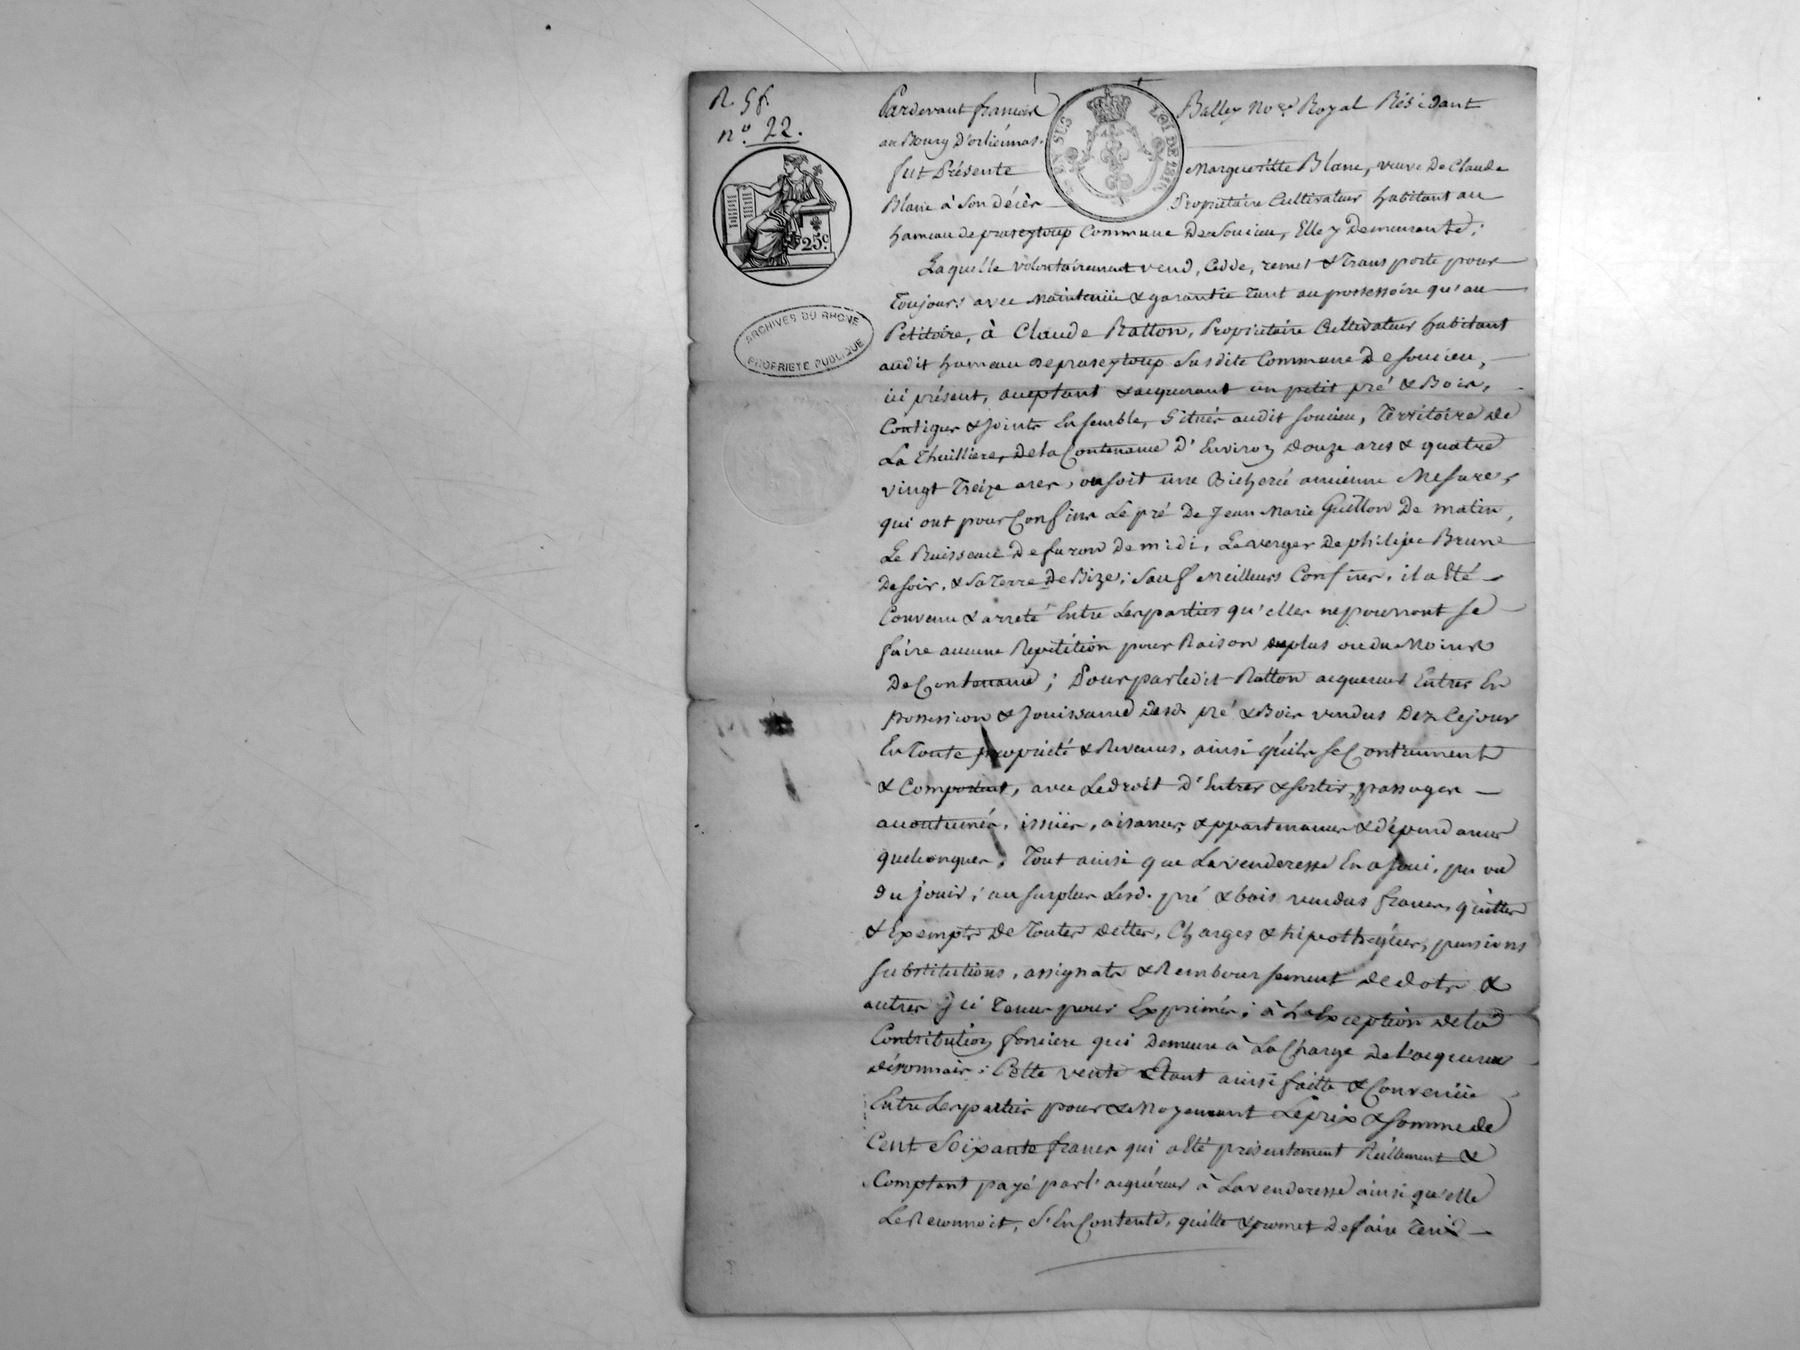 R. 5 f.
nº 22.
25c
ARCHIVES DU RHONE
PROPRIETE PUBLIQUE
EN SUS
LOI DE 1816
Pardevant françois Balley No.re Royal Résidant
au Bourg D'orliénas.
fut Présente Margueritte Blanc, veuve De Claude
Blanc à Son décès Propriétaire Cultivateur habitant au
hameau de praseyloup Commune De Soucieu, Elle y Demeurante;
Laquelle volontairement vend, Cedde, remet & Transporte pour
Toujours avec maintenüe & garantie Tant au possessoire qu'au
Petitoire, à Claude Ratton, Propriétaire Cultivateur habitant
audit hameau de praseyloup Susdite Commune De Soucieu,
ici présent, acceptant & acquerant un petit pré & Bois,
Contigus & Joints Ensemble, Situés audit Soucieu, Territoire de
La Thuilliere, de la Contenance D'Environ Douze ares & quatre
vingt Treize ares, ou soit une Bicherée ancienne Mesure,
qui ont pour Confins Le pré De Jean Marie Guitton De matin,
Le Ruisseau De furon De midi, Le verger De philipe Brune
De soir, & Sa Terre De Bize; Sauf Meilleurs Confins, il a Eté
Convenu & arreté Entre Les parties qu'elles ne pourront se
faire aucune Repétition pour Raison du plus ou du Moins
De Contenance; Pour par ledit Ratton acquereur Entrer En
possession & Jouissance desd. pré & Bois vendus Dez Ce jour
En Toute propriété & Revenus, ainsi qu'ils se Contiennent
& Comportent, avec Le droit D'Entrer & sortir, passages
accoutumés, issües, aisances, appartenances & dépendances
quelconques, Tout ainsi que La venderesse En a joui, pu ou
Du jouir; au surplus Lesd. pré & bois vendus francs, quittes
& Exempts De Toutes dettes, Charges & hipothéques, pensions
substitutions, assignats & Remboursement de dots &
autres ici Tenus pour Exprimés; à L'Exception de la
Contribution fonciere qui Demeure à La Charge De l'acquereur
désormais; Cette vente Etant ainsi faitte & Convenüe
Entre Les parties pour & Moyennant Le prix & somme de
Cent Soixante francs qui a Eté présentement Réellement &
Comptant payé par l'acquéreur à La venderesse ainsi qu'elle
Le Reconnoit, S'En Contente, quitte & promet De faire Tenir